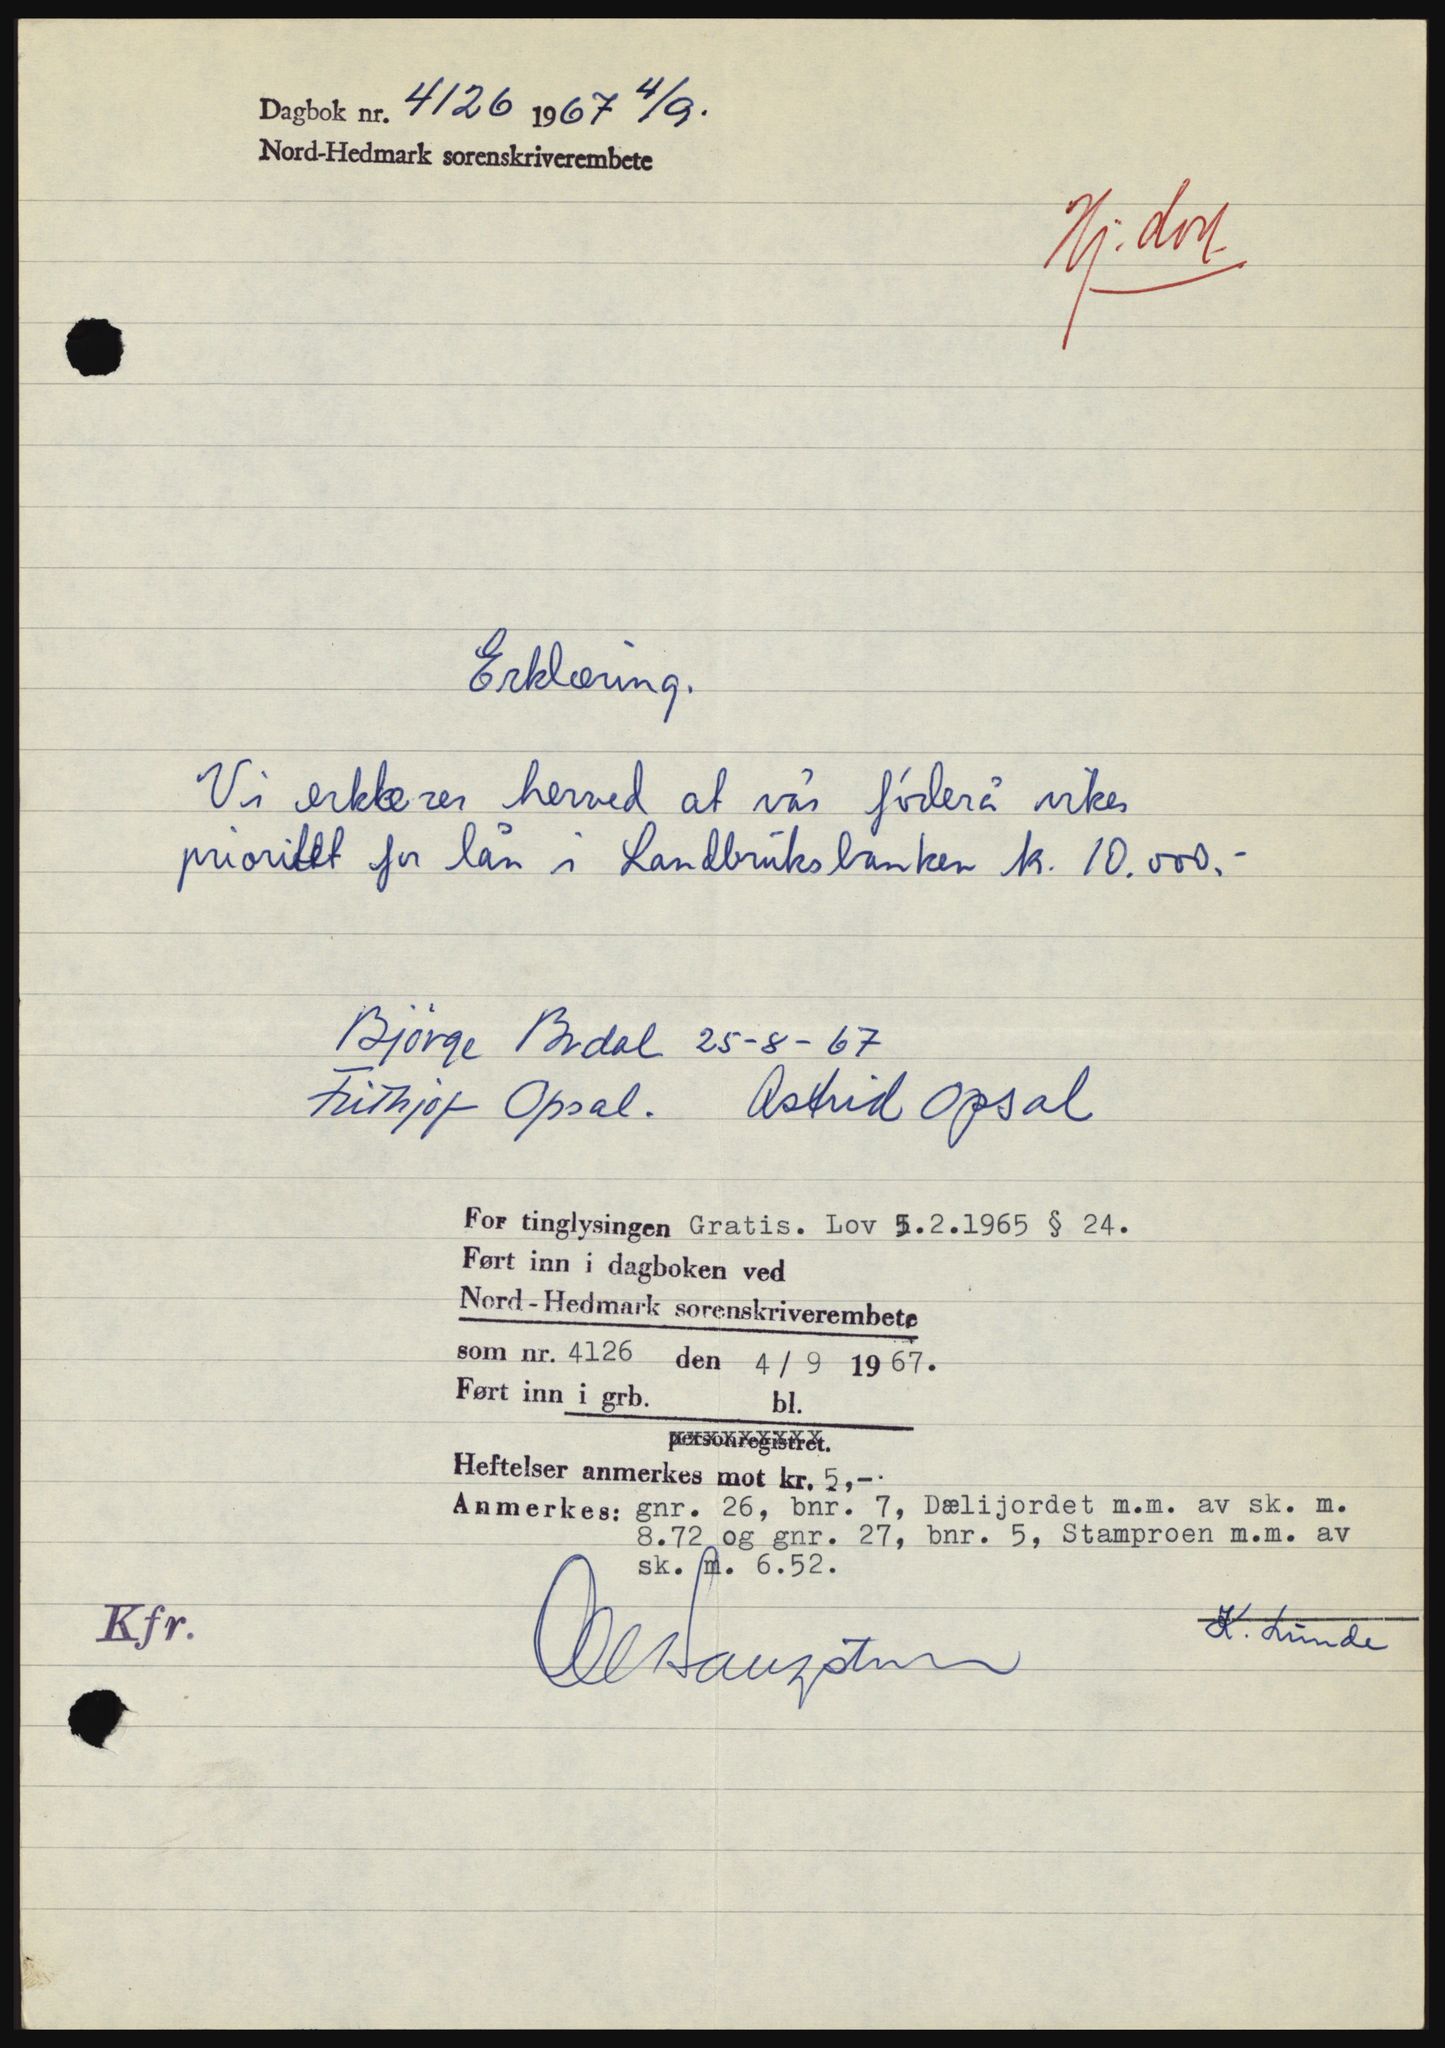 Dagbok nr. 4126 1967 4/9.
Nord-Hedmark sorenskriverembete
Hj. dok
Erklæring.
Vi erklærer herved at vår föderå vikes
prioritet for lån i Landbruksbanken k. 10.000.-
Björge Brdal 25-8-67
Frithjof Opsal. Astrid Opsal
For tinglysingen Gratis. Lov 5.2.1965 § 24.
Ført inn i dagboken ved
Nord-Hedmark sorenskriverembete
som nr. 4126 den 4/9 1967.
Ført inn i grb. bl.
personregistret.
Heftelser anmerkes mot kr. 5,-.
Anmerkes: gnr. 26, bnr. 7, Dælijordet m.m. av sk. m.
8.72 og gnr. 27, bnr. 5, Stamproen m.m. av
sk. m. 6.52.
Kfr.
K. Lunde